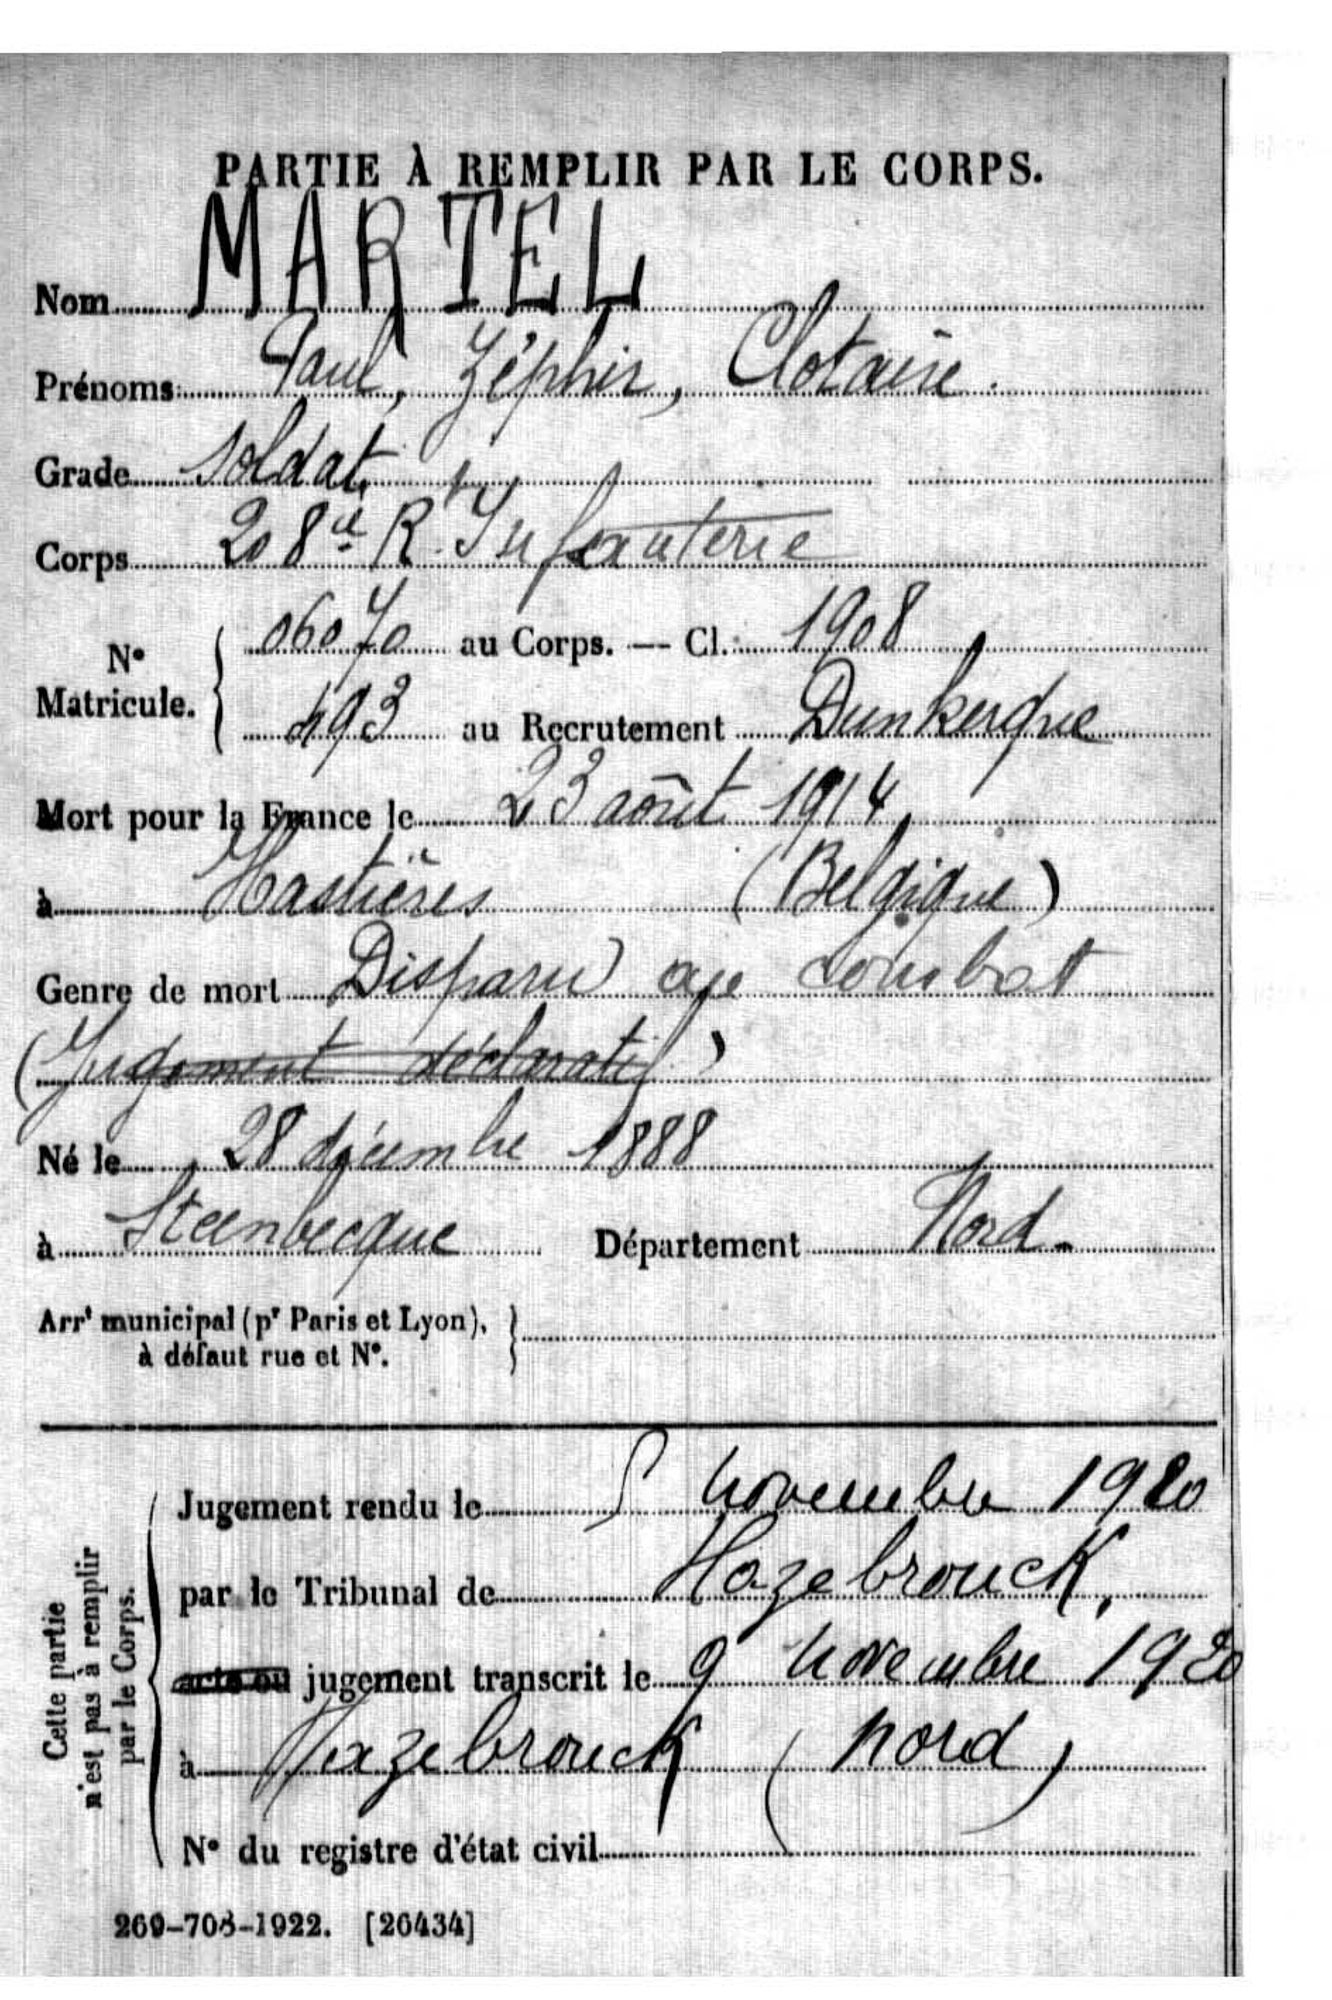 PARTIE À REMPLIR PAR LE CORPS.
Nom MARTEL
Prénoms Paul, Zéphir, Clotaire.
Grade soldat
Corps 208e R. Infanterie
No Matricule. { 06070 au Corps. — Cl. 1908
493 au Recrutement Dunkerque
Mort pour la France le 23 août 1914
à Hastières (Belgique)
Genre de mort Disparu au combat
(Jugement déclaratif)
Né le 28 décembre 1888
à Steenbecque Département Nord.
Arrt municipal (pr Paris et Lyon), }
à défaut rue et No.
Cette partie
n'est pas à remplir
par le Corps.
Jugement rendu le 5 novembre 1920
par le Tribunal de Hazebrouck,
acte ou jugement transcrit le 9 novembre 1920
à Hazebrouck (Nord)
No du registre d'état civil
269-708-1922. [26434]